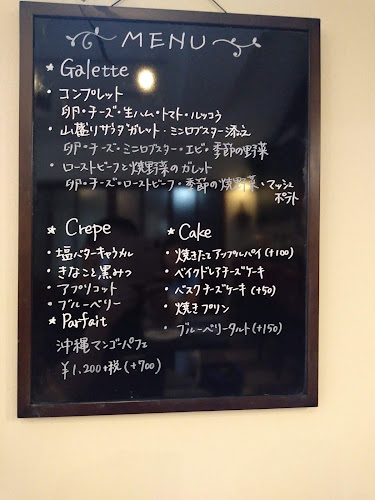 MENU
★ Galette
・コンプレット
卵・チーズ・生ハム・トマト・ルッコラ
・山盛りサラダガレット・ミニロブスター添え
卵・チーズ・ミニロブスター・エビ・季節の野菜
・ローストビーフと焼野菜のガレット
卵・チーズ・ローストビーフ・季節の焼野菜・マッシュ
ポテト
★ Crepe
・塩バターキャラメル
・きなこと黒みつ
・アプリコット
・ブルーベリー
★ Parfait
沖縄マンゴーパフェ
¥1,200+税(+700)
★ Cake
・焼きたてアップルパイ(+100)
・ベイクドレアチーズケーキ
・バスクチーズケーキ(+50)
・焼きプリン
・ブルーベリータルト(+150)